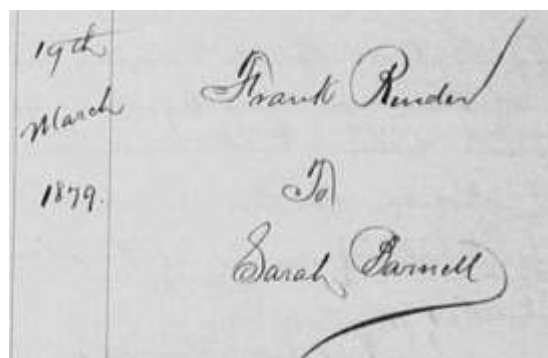 19th
March
1879.
Frank Render
To
Sarah Parnell